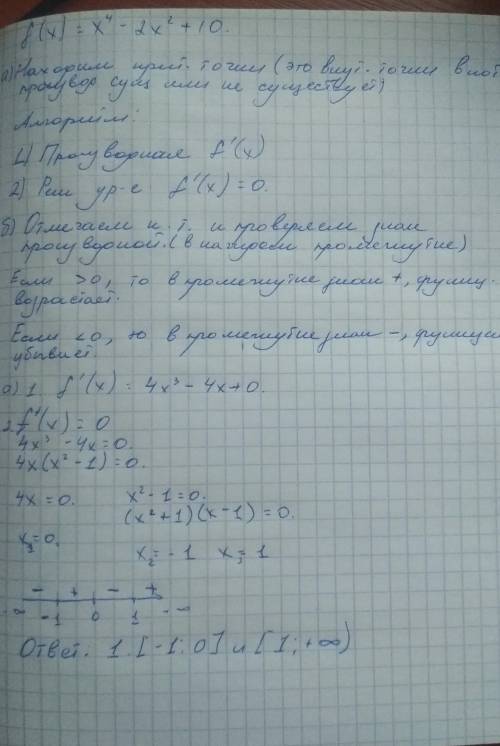 f(x) = x⁴ - 2x² + 10.
а) Находим крит. точки (это внут. точки в кот
производ сущ или не существует)
Алгоритм:
1) Производная f'(x)
2) Реш ур-е f'(x) = 0.
б) Отмечаем к. т. и проверяем знак
производной. (в каждом промежутке)
Если >0, то в промежутке знак +, функц.
возрастает.
Если <0, то в промежутке знак -, функция
убывает.
а) 1. f'(x) = 4x³ - 4x + 0.
2. f'(x) = 0
4x³ - 4x = 0.
4x(x² - 1) = 0.
4x = 0. x² - 1 = 0.
(x² + 1)(x - 1) = 0.
x₁ = 0. x₂ = - 1 x₃ = 1
- + - +
-∞ -1 0 1 -∞
Ответ. 1. [-1; 0] и [1; +∞)